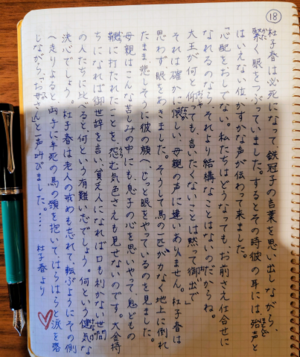 ⑱
杜子春は必死になって、鉄冠子の言葉を思い出しながら、
緊く眼をつぶっていました。するとその時彼の耳には、殆声と
はいえない位、かすかな声が伝わって来ました。
「心配をおしでない。私たちはどうなっても、お前さえ仕合せに
なれるのなら、それより結構なことはないのだからね。
大王が何と仰っても、言いたくないことは黙って御出で」
それは確かに懐しい、母親の声に違いありません。杜子春は
思わず、眼をあきました。そうして馬の一匹が、力なく地上に倒れ
たまま、悲しそうに彼の顔へ、じっと眼をやっているのを見ました。
母親はこんな苦しみの中にも、息子の心を思いやって、鬼どもの
鞭に打たれたことを、怨む気色さえも見せないのです。大金持
ちになれば御世辞を言い、貧乏人になれば口も利かない世間
の人たちに比べると、何という有難い志でしょう。何という健気な
決心でしょう。杜子春は老人の戒めも忘れて、転ぶようにその側
へ走りよると、両手に半死の馬の頸を抱いて、はらはらと涙を落
しながら、「お母さん」と一声叫びました。……
杜子春より